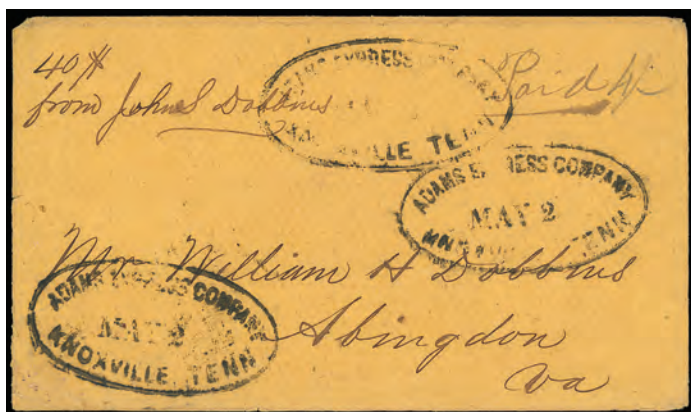 40 $
from John S Dobbins
ADAMS EXPRESS COMPANY
KNOXVILLE TENN
Paid
ADAMS EXPRESS COMPANY
MAY 2
KNOXVILLE TENN
Mr. William H Dobbins
ADAMS EXPRESS COMPANY
MAY 2
KNOXVILLE TENN
Abingdon
Va